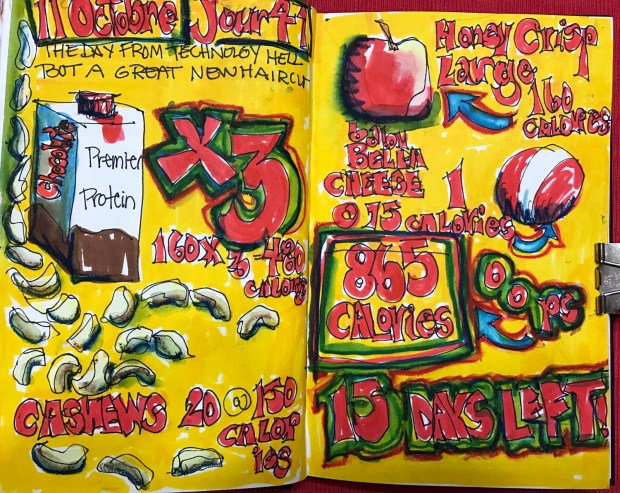 11 Octobre Jour 41
THE DAY FROM TECHNOLOGY HELL
BUT A GREAT NEW HAIRCUT
Chocolate
Premier
Protein
x3
160 x 3 = 480
CALORIES
CASHEWS 20 @ 150
CALOR
IES
Honey Crisp
Large
160
CALORIES
baby
BELLA
CHEESE 1
@ 75 CALORIES
865
CALORIES
OOPS
15 DAYS LEFT!